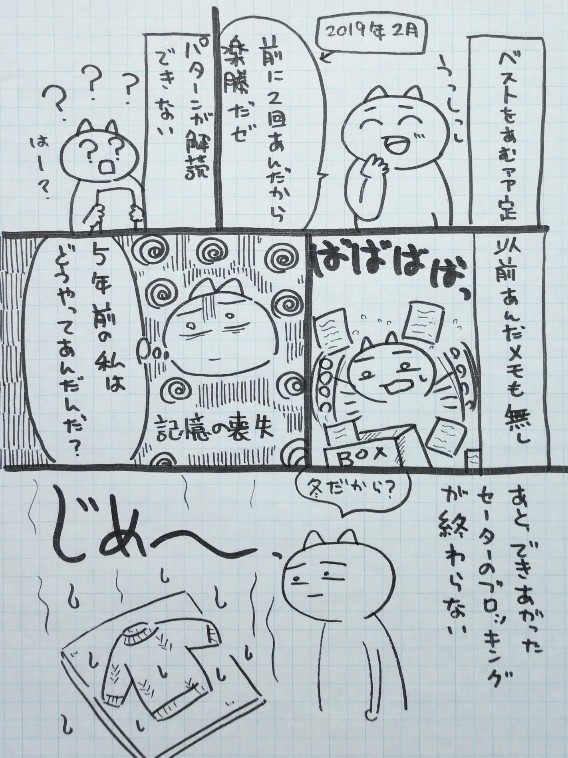 2019年2月
ベストをあむ予定
うっしっし
前に2回あんだから
楽勝だぜ
パターンが解読
できない
？
？
？
はー？
以前あんだメモも無し
ばばばばっ
BOX
記憶の喪失
5年前の私は
どうやってあんだんだ？
あと、できあがった
セーターのブロッキング
が終わらない
冬だから？
じめ〜